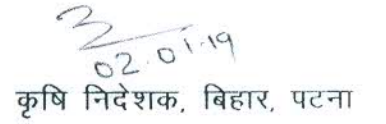 02.01.19
कृषि निदेशक, बिहार, पटना